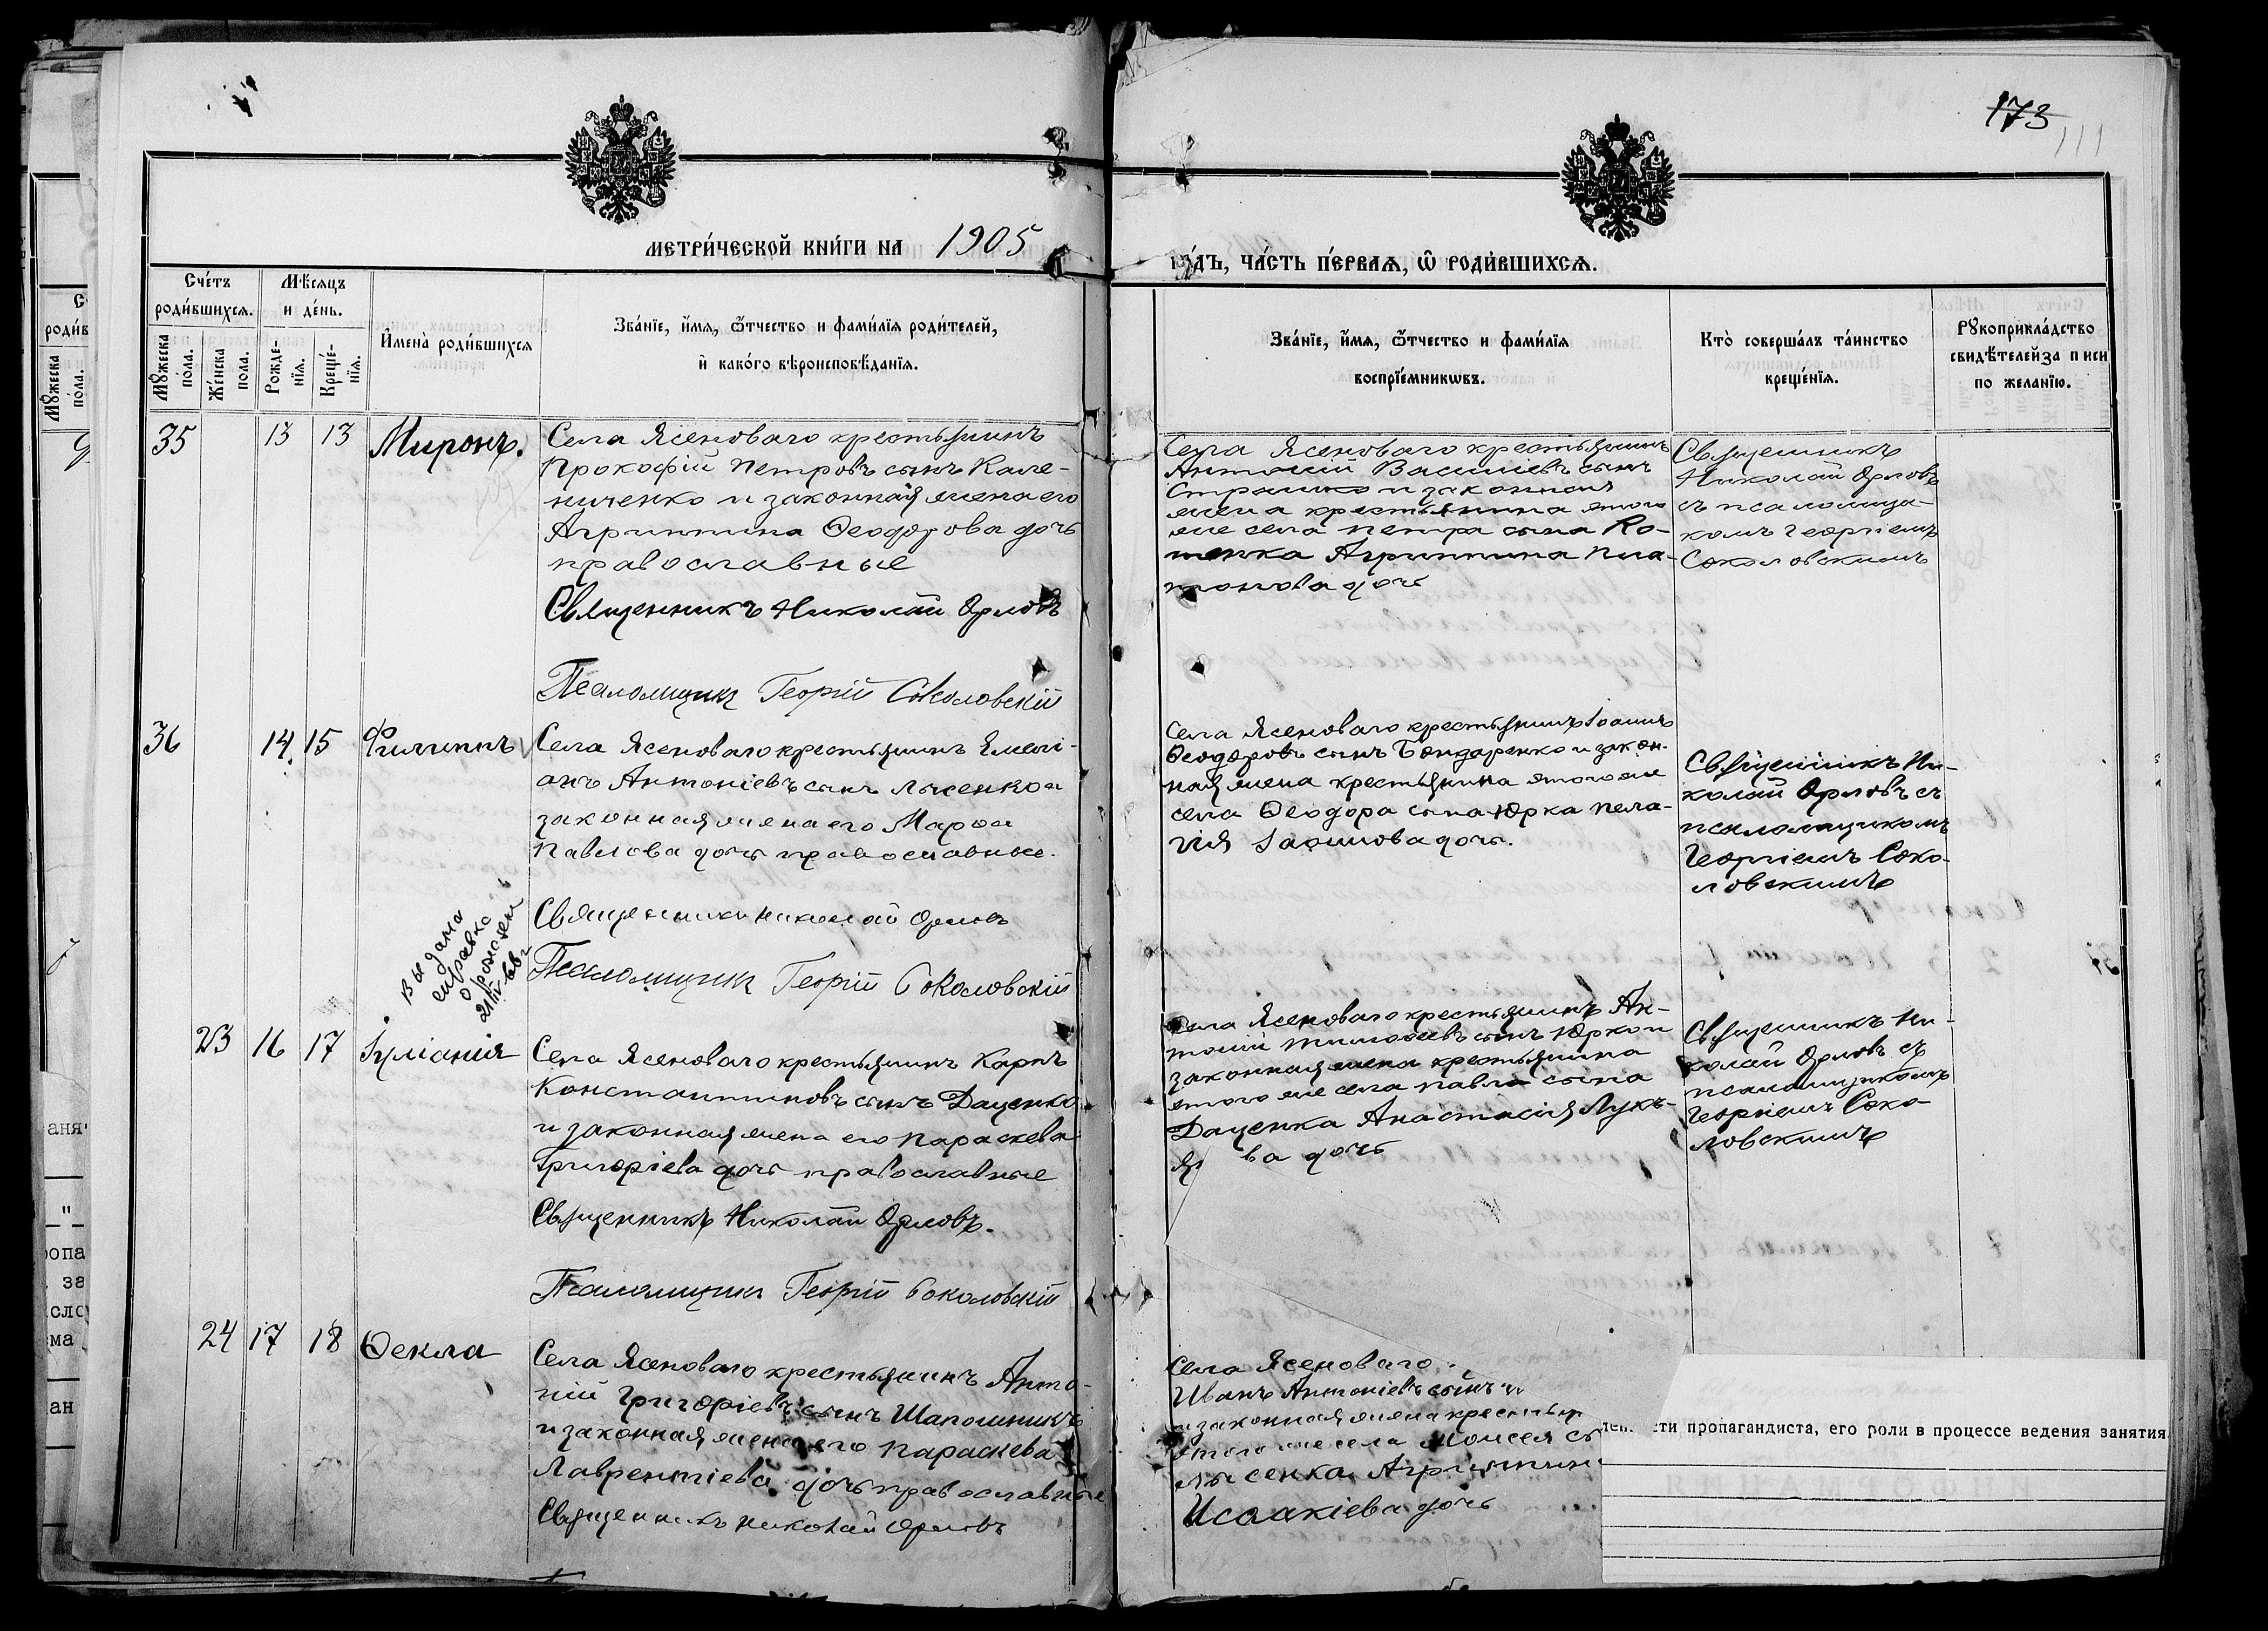 173
111
МЕТРИ́ЧЕСКОЙ КНИ́ГИ НА 1905
ГО́ДЪ, ЧА́СТЬ ПЕ́РВАѦ, Ѿ РОДИ́ВШИХСѦ.
Сче́тъ роди́вшихсѧ.
Мꙋ́жеска по́ла.
Же́нска по́ла.
Мѣ́сѧцъ и де́нь.
Рожде́нїѧ.
Креще́нїѧ.
И҆мена̀ роди́вшихсѧ
Зва́нїе, и҆́мѧ, ѻ҆́тчество и фами́лїѧ роди́телей,
и҆ како́гѡ вѣроисповѣ́данїѧ.
Зва́нїе, и҆́мѧ, ѻ҆́тчество и фами́лїѧ
воспрїе́мникѡвъ.
Кто̀ соверша́лъ та́инство
креще́нїѧ.
Рꙋкоприкла́дство
свидѣ́телей за писи
по жела́нїю.
35 13 13 Миронъ.
Села Ясеноваго крестьянинъ
Прокофій Петровъ сынъ Кале-
ниченко и законная жена его
Агриппина Ѳеодорова дочь
православные
Священникъ Николай Орловъ
Псаломщикъ Георгій Соколовскій
Села Ясеноваго крестьянинъ
Антоній Василіевъ сынъ
и законная
жена крестьянина этого
же села Петра сына Ко-
Агриппина Пла-
тонова дочь
Священникъ
Николай Орловъ
съ псаломщи-
комъ Георгіемъ
Соколовскимъ
36 14 15 Филиппъ
Села Ясеноваго крестьянинъ Емелі-
анъ Антоніевъ сынъ Лысенко и
законная жена его Марѳа
Павлова дочь православные.
Священникъ Николай Орловъ
Псаломщикъ Георгій Соколовскій
Села Ясеноваго крестьянинъ Іоаннъ
Ѳеодоровъ сынъ Бондаренко и закон-
ная жена крестьянина этого же
села Ѳеодора сына Юрка Пела-
гія Іоаннова дочь.
Священникъ Ни-
колай Орловъ съ
псаломщикомъ
Георгіемъ Соко-
ловскимъ
Выдана
справка
о рожден
21/IV-66г
23 16 17 Іуліанія
Села Ясеноваго крестьянинъ Карпъ
Константиновъ сынъ Даценко
и законная жена его Параскева
Григоріева дочь православные
Священникъ Николай Орловъ.
Псаломщикъ Георгій Соколовскій
Села Ясеноваго крестьянинъ Ан-
тоній Тимоѳеевъ сынъ Юрко и
законная жена крестьянина
этого же села Павла сына
Даценка Анастасія Лукь-
я ва дочь
Священникъ Ни-
колай Орловъ съ
псаломщикомъ
Георгіемъ Соко-
ловскимъ
24 17 18 Ѳекла
Села Ясеноваго крестьянинъ Анто-
ній Григоріевъ сынъ Шапошникъ
и законная жена его Параскева
Лаврентіева дочь православные
Священникъ Николай Орловъ
Села Ясеноваго
Иванъ Антоніевъ сынъ
и законная жена крестьян
этого же села Моисея сы
Лысенка Агриппин
Исаакіева дочь
сти пропагандиста, его роли в процессе ведения занятия